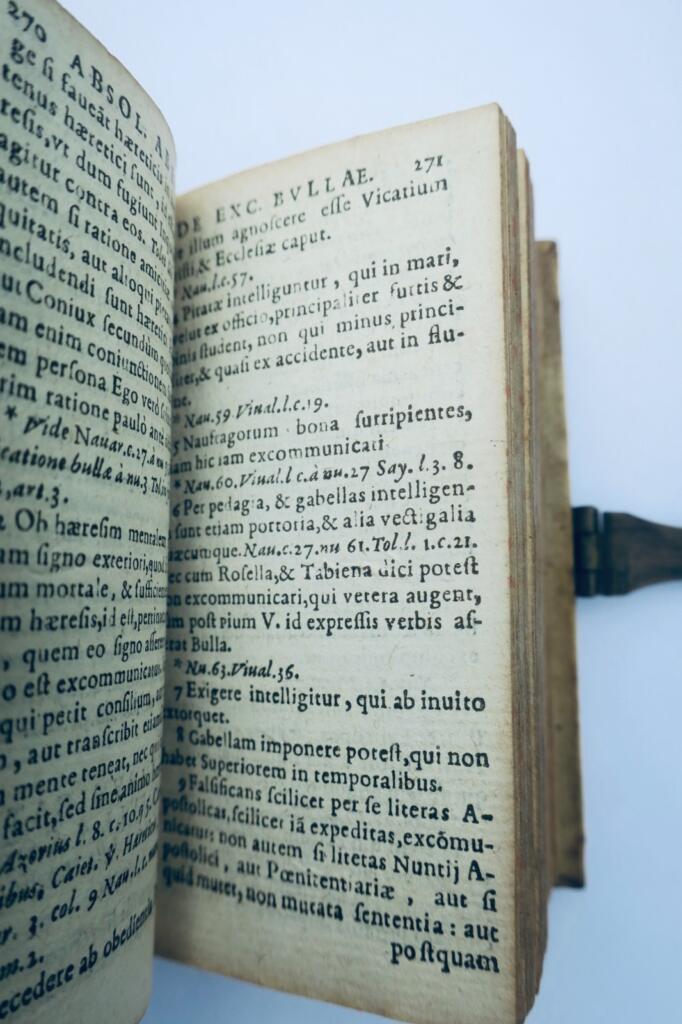 270 ABSOL. AB
ge si faueāt hæreticis
tenus hæretici sunt,
resis, vt dum fugiunt
agitur contra eos.
autem si ratione amicitiæ
quitatis, aut alioqui
ncludendi sunt hæretici
ut Coniux secundùm
am enim coniunctionem
em persona Ego verò
rim ratione paulò ante
* Vide Nauar. c. 27. à nu
catione bullæ à nu. 3. Tol.
, art. 3.
Ob hæresim mentalem
am signo exteriori, quod
um mortale, & sufficiens
m hæresis, id est,
, quem eo signo
o est excommunicatus
qui petit consilium,
, aut transcribit etiam
mente teneat, nec
facit, sed sine animo
Azorius l. 8. c. 10.
ibus, Caiet. v.
r. 3. col. 9 Nau. l.
m. 2.
ecedere ab obedientia
DE EXC. BVLLAE. 271
illum agnoscere esse Vicarium
& Ecclesiæ caput.
Nau. l. c. 57.
Piratæ intelliguntur, qui in mari,
velut ex officio, principaliter furtis &
student, non qui minus princi-
& quasi ex accidente, aut in flu-
* Nau. 59. Viual. l. c. 19.
5 Naufragorum bona surripientes,
iam hic iam excommunicati
* Nau. 60. Viual. l c. à nu. 27 Say. l. 3. 8.
6 Per pedagia, & gabellas intelligen-
sunt etiam portoria, & alia vectigalia
æcumque. Nau. c. 27. nu 61. Tol. l. 1. c. 21.
ec cum Rosella, & Tabiena dici potest
on excommunicari, qui vetera augent,
m post Pium V. id expressis verbis as-
rat Bulla.
* Nu. 63. Viual. 36.
7 Exigere intelligitur, qui ab inuito
extorquet.
8 Gabellam imponere potest, qui non
habet Superiorem in temporalibus.
9 Falsificans scilicet per se literas A-
postolicas, scilicet iā expeditas, excōmu-
nicatur: non autem si literas Nuntij A-
postolici, aut Pœnitentiariæ, aut si
quid mutet, non mutata sententia: aut
postquam